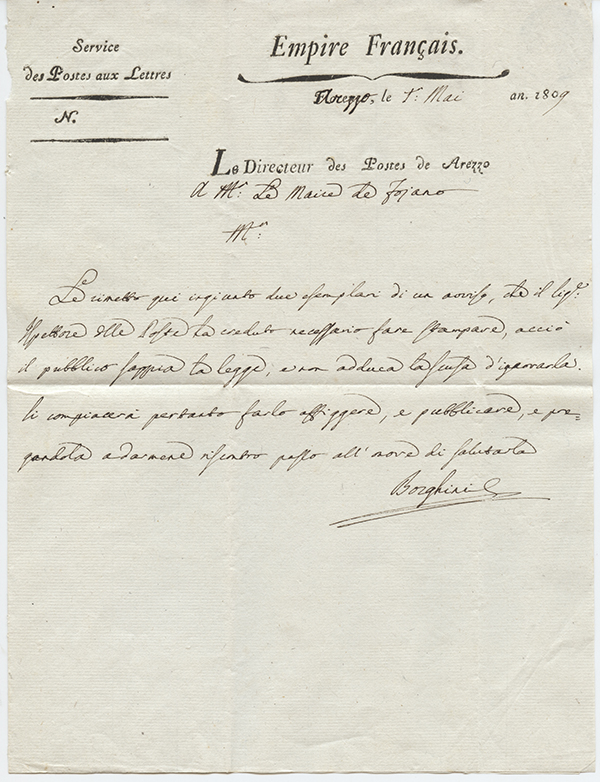 Service
des Postes aux Lettres
N.
Empire Français.
Arezzo, le 1: Mai an. 1809
Le Directeur des Postes de Arezzo
A Mr. Le Maire de Fojano
Mon:
Le rimetto qui ingiunto due esemplari di un avviso, che il Sigr:
Ispettore delle Poste ha creduto necessario fare stampare, acciò
il pubblico sappia la legge, e non adduca la scusa d'ignorarla.
Si compiacerà pertanto farlo affiggere, e pubblicare, e pre=
gandola a darmene riscontro passo all'onore di salutarla
Borghini